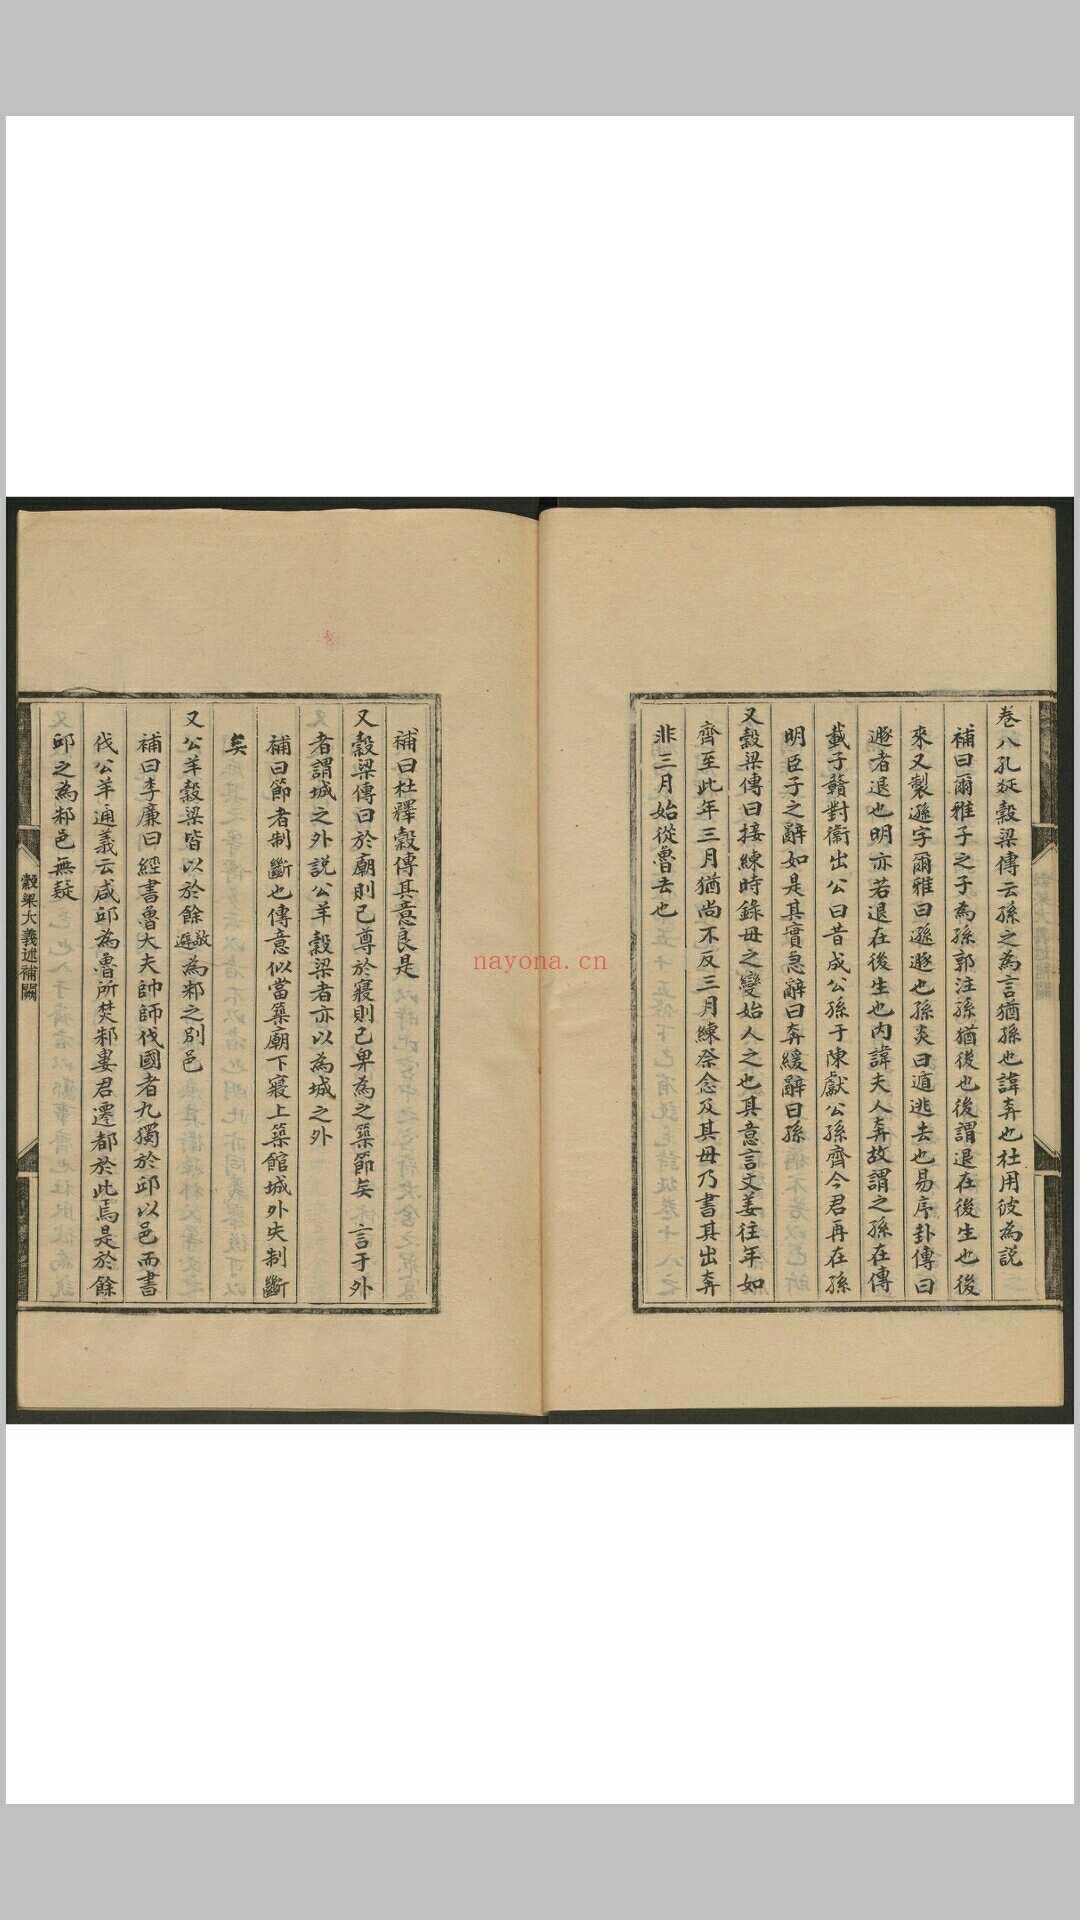 卷八孔疑穀梁傳云孫之為言猶孫也諱奔也杜用彼為說
補曰爾雅子之子為孫郭注孫猶後也後謂退在後生也後
來又製遜字爾雅曰遜遯也孫炎曰遁逃去也易序卦傳曰
遯者退也明亦若退在後生也內諱夫人奔故謂之孫在傳
載子贛對衛出公曰昔成公孫于陳獻公孫齊今君再在孫
明臣子之辭如是其實急辭曰奔緩辭曰孫
又穀梁傳曰接練時錄母之變始人之也其意言文姜往年如
齊至此年三月猶尚不反三月練祭念及其母乃書其出奔
非三月始從魯去也
補曰杜釋穀傳其意良是
又穀梁傳曰於廟則已尊於寢則已卑為之築節矣 言于外
者謂城之外說公羊穀梁者亦以為城之外
補曰節者制斷也傳意似當築廟下寢上築館城外失制斷
矣
又公羊穀梁皆以於餘為邾之別邑
補曰李廉曰經書魯大夫帥師伐國者九獨於邱以邑而書
伐公羊通義云咸邱為魯所焚邾婁君遷都於此焉是於餘
邱之為邾邑無疑
穀梁大義述補闕
nayona.cn